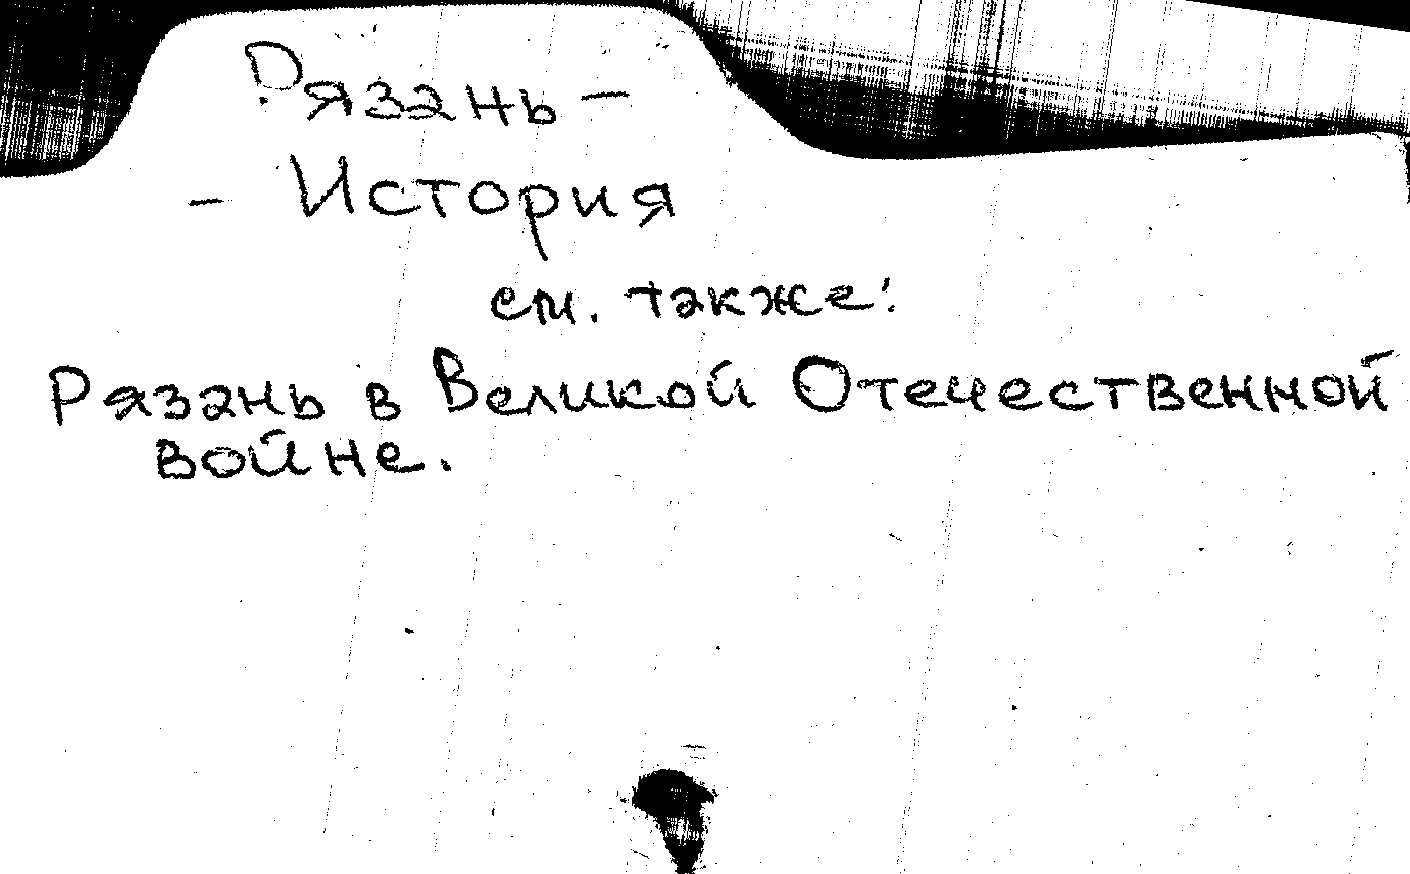 Рязань –
– История
см. также:
Рязань в Великой Отечественной
войне.